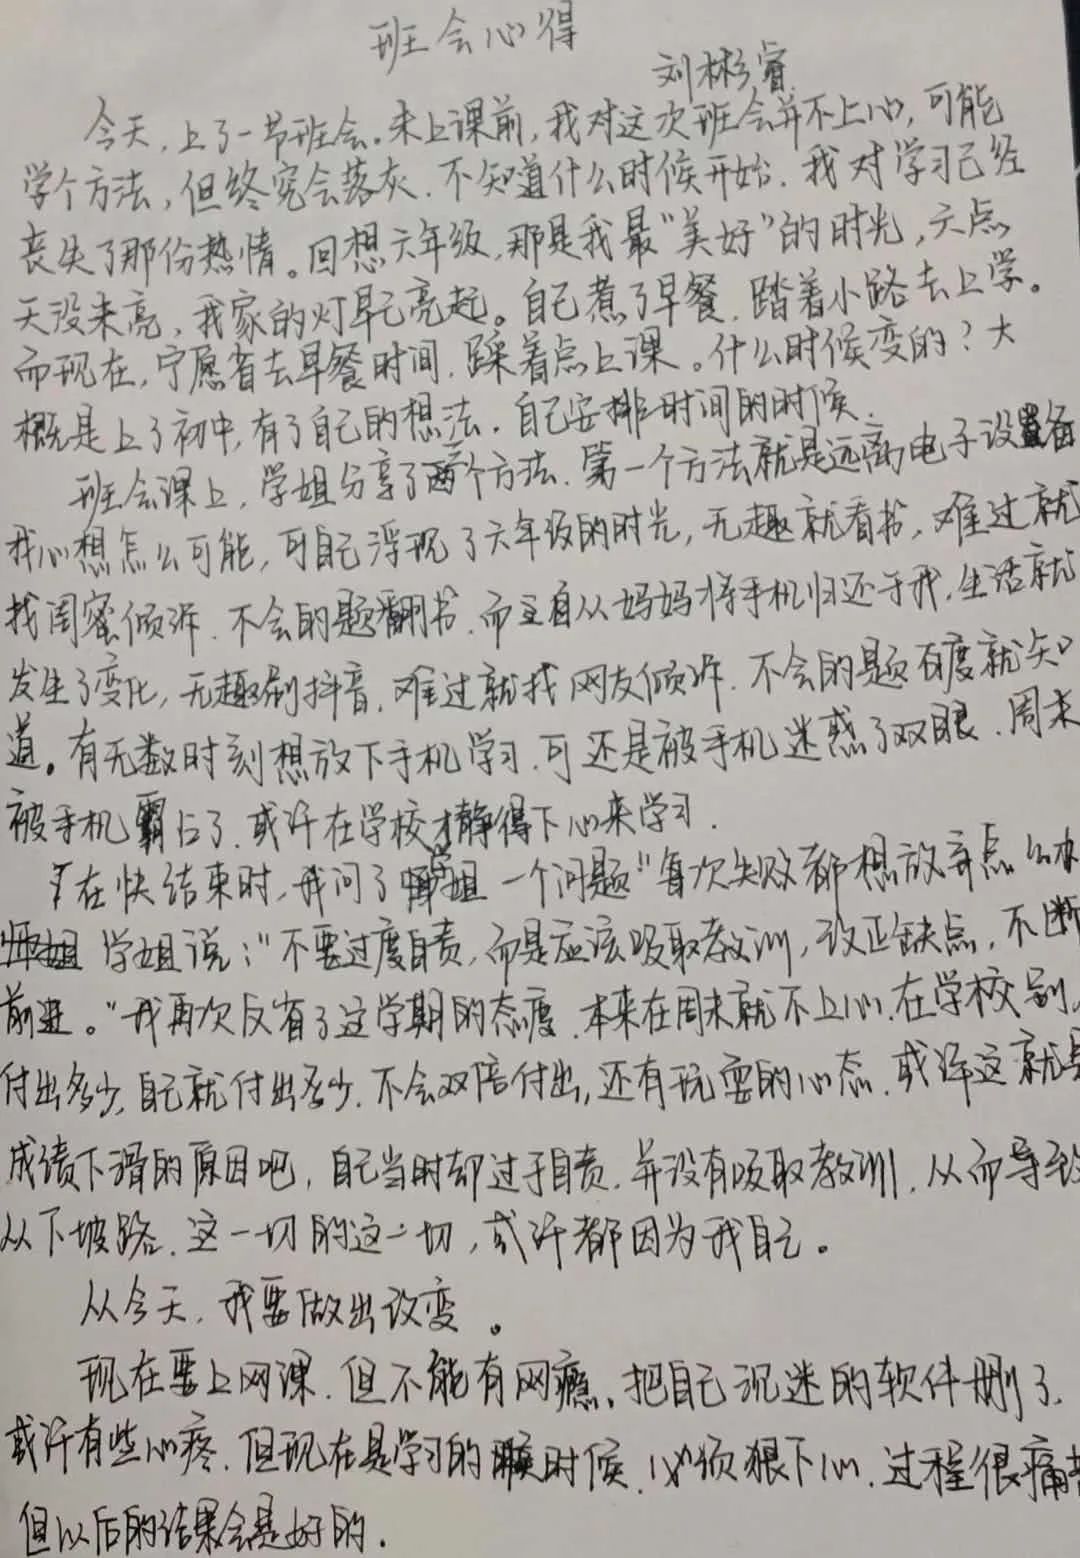 班会心得
刘彬睿
今天，上了一节班会。未上课前，我对这次班会并不上心，可能
学个方法，但终究会落灰．不知道什么时候开始．我对学习已经
丧失了那份热情。回想六年级，那是我最"美好"的时光，六点
天没来亮，我家的灯早已亮起。自己煮了早餐．踏着小路去上学。
而现在，宁愿省去早餐时间．踩着点上课。什么时候变的？大
概是上了初中，有了自己的想法．自己安排时间的时候．
班会课上，学姐分享了两个方法．第一个方法就是远离电子设备
我心想怎么可能，可自己浮现了六年级的时光，无趣就看书，难过就
找闺蜜倾诉．不会的题翻书．而至自从妈妈将手机归还于我，生活就
发生了变化，无趣刷抖音．难过就找网友倾诉．不会的题百度就知
道。有无数时刻想放下手机学习．可还是被手机迷惑了双眼．周末
被手机霸占了．或许在学校才静得下心来学习．
在快结束时，我问了学姐一个问题"每次失败都想放弃点么办
学姐说："不要过度自责，而是应该吸取教训，改正缺点，不断
前进。"我再次反省了这学期的态度．本来在周末就不上心．在学校别人
付出多少，自己就付出多少．不会双倍付出，还有玩耍的心态．或许这就是
成绩下滑的原因吧，自己当时却过于自责．并没有吸取教训．从而导致
从下坡路．这一切的这一切，或许都因为我自己。
从今天，我要做出改变。
现在要上网课．但不能有网瘾．把自己沉迷的软件删了．
或许有些心疼．但现在是学习的时候．必须狠下心．过程很痛苦
但以后的结果会是好的．